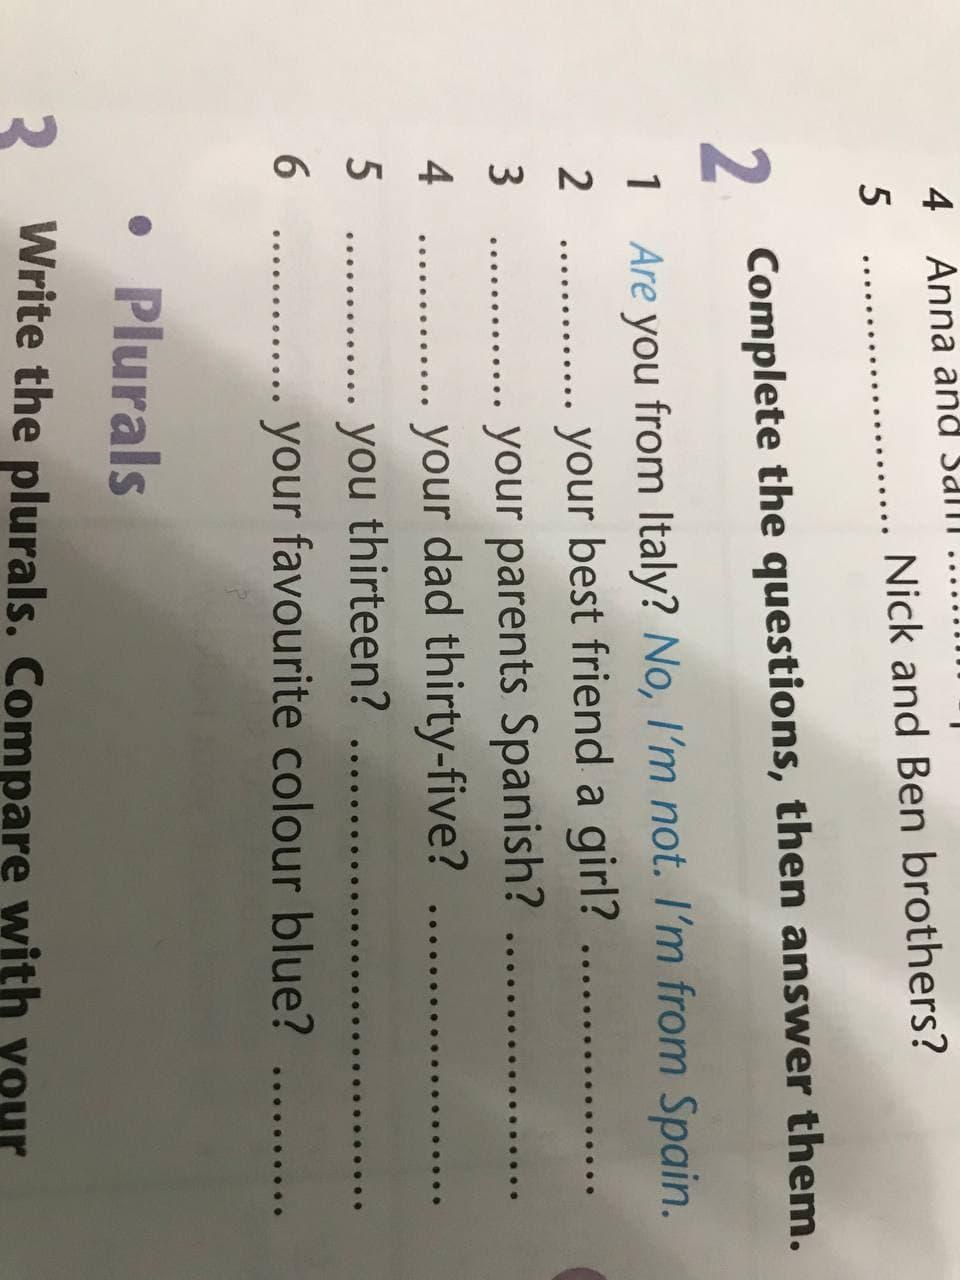 4 Anna and Sam ............
5 ........................ Nick and Ben brothers?
2 Complete the questions, then answer them.
1 Are you from Italy? No, I'm not. I'm from Spain.
2 ............ your best friend a girl? ........................
3 ............ your parents Spanish? ........................
4 ............ your dad thirty-five? ........................
5 ............ you thirteen? ........................................
6 ............ your favourite colour blue? ............
• Plurals
3 Write the plurals. Compare with your